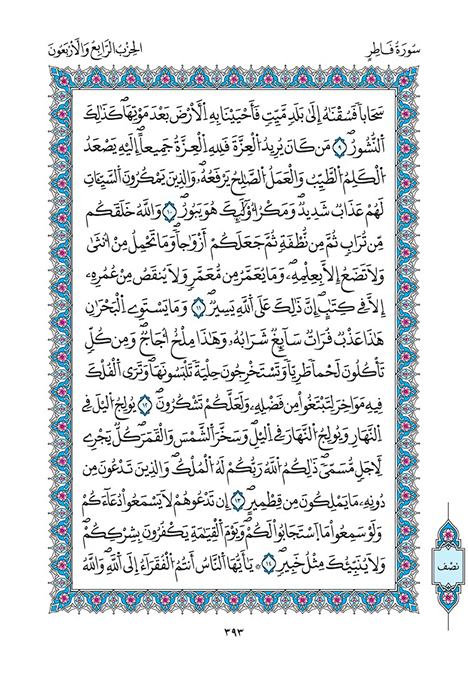 سُورَةُ فَاطِرٍ
الحِزْبُ الرَّابِعُ وَالْأَرْبَعُونَ
سَحَاباً فَسُقْنَٰهُ إِلَىٰ بَلَدٖ مَّيِّتٖ فَأَحْيَيْنَا بِهِ اِ۬لْأَرْضَ بَعْدَ مَوْتِهَاۖ كَذَٰلِكَ
اَ۬لنُّشُورُۖ ٩ مَن كَانَ يُرِيدُ اُ۬لْعِزَّةَ فَلِلهِ اِ۬لْعِزَّةُ جَمِيعاًۖ اِلَيْهِ يَصْعَدُ
اُ۬لْكَلِمُ اُ۬لطَّيِّبُ وَالْعَمَلُ اُ۬لصَّٰلِحُ يَرْفَعُهُۥۖ وَالذِينَ يَمْكُرُونَ اَ۬لسَّيِّـَٔاتِ
لَهُمْ عَذَابٞ شَدِيدٞۖ وَمَكْرُ أُوْلَٰٓئِكَ هُوَ يَبُورُۖ ١٠ وَاللَّهُ خَلَقَكُم
مِّن تُرَابٖ ثُمَّ مِن نُّطْفَةٖ ثُمَّ جَعَلَكُمُۥٓ أَزْوَٰجاًۖ وَمَا تَحْمِلُ مِنُ ا۟نث۪ىٰ
وَلَا تَضَعُ إِلَّا بِعِلْمِهِۦۖ وَمَا يُعَمَّرُ مِن مُّعَمَّرٖ وَلَا يُنقَصُ مِنْ عُمُرِهِۦٓ
إِلَّا فِے كِتَٰبٍۖ اِنَّ ذَٰلِكَ عَلَى اَ۬للَّهِ يَسِيرٞۖ ١١ وَمَا يَسْتَوِے اِ۬لْبَحْرَٰنِ
هَٰذَا عَذْبٞ فُرَاتٞ سَآئِغٞ شَرَابُهُۥ وَهَٰذَا مِلْحٌ اُجَاجٞۖ وَمِن كُلّٖ
تَاكُلُونَ لَحْماٗ طَرِيّاٗ وَتَسْتَخْرِجُونَ حِلْيَةٗ تَلْبَسُونَهَاۖ وَتَرَى اَ۬لْفُلْكَ
فِيهِ مَوَاخِرَ لِتَبْتَغُواْ مِن فَضْلِهِۦ وَلَعَلَّكُمْ تَشْكُرُونَۖ ١٢ يُولِجُ اُ۬ليْلَ فِے
اِ۬لنَّهَارِ وَيُولِجُ اُ۬لنَّهَارَ فِے اِ۬ليْلِۖ وَسَخَّرَ اَ۬لشَّمْسَ وَالْقَمَرَۖ كُلّٞ يَجْرِے
لِأَجَلٖ مُّسَمّيٗۖ ذَٰلِكُمُ اُ۬للَّهُ رَبُّكُمْ لَهُ اُ۬لْمُلْكُۖ وَالذِينَ تَدْعُونَ مِن
دُونِهِۦ مَا يَمْلِكُونَ مِن قِطْمِيرٍۖ ١٣ اِن تَدْعُوهُمْ لَا يَسْمَعُواْ دُعَآءَكُمْ
وَلَوْ سَمِعُواْ مَا اَ۪سْتَجَابُواْ لَكُمْۖ وَيَوْمَ اَ۬لْقِيَٰمَةِ يَكْفُرُونَ بِشِرْكِكُمْۖ
وَلَا يُنَبِّئُكَ مِثْلُ خَبِيرٖۖ ١٤ ۞ يَٰٓأَيُّهَا اَ۬لنَّاسُ أَنتُمُ اُ۬لْفُقَرَآءُ اِ۪لَى اَ۬للَّهِۖ وَاللَّهُ
نصف
٣٩٣